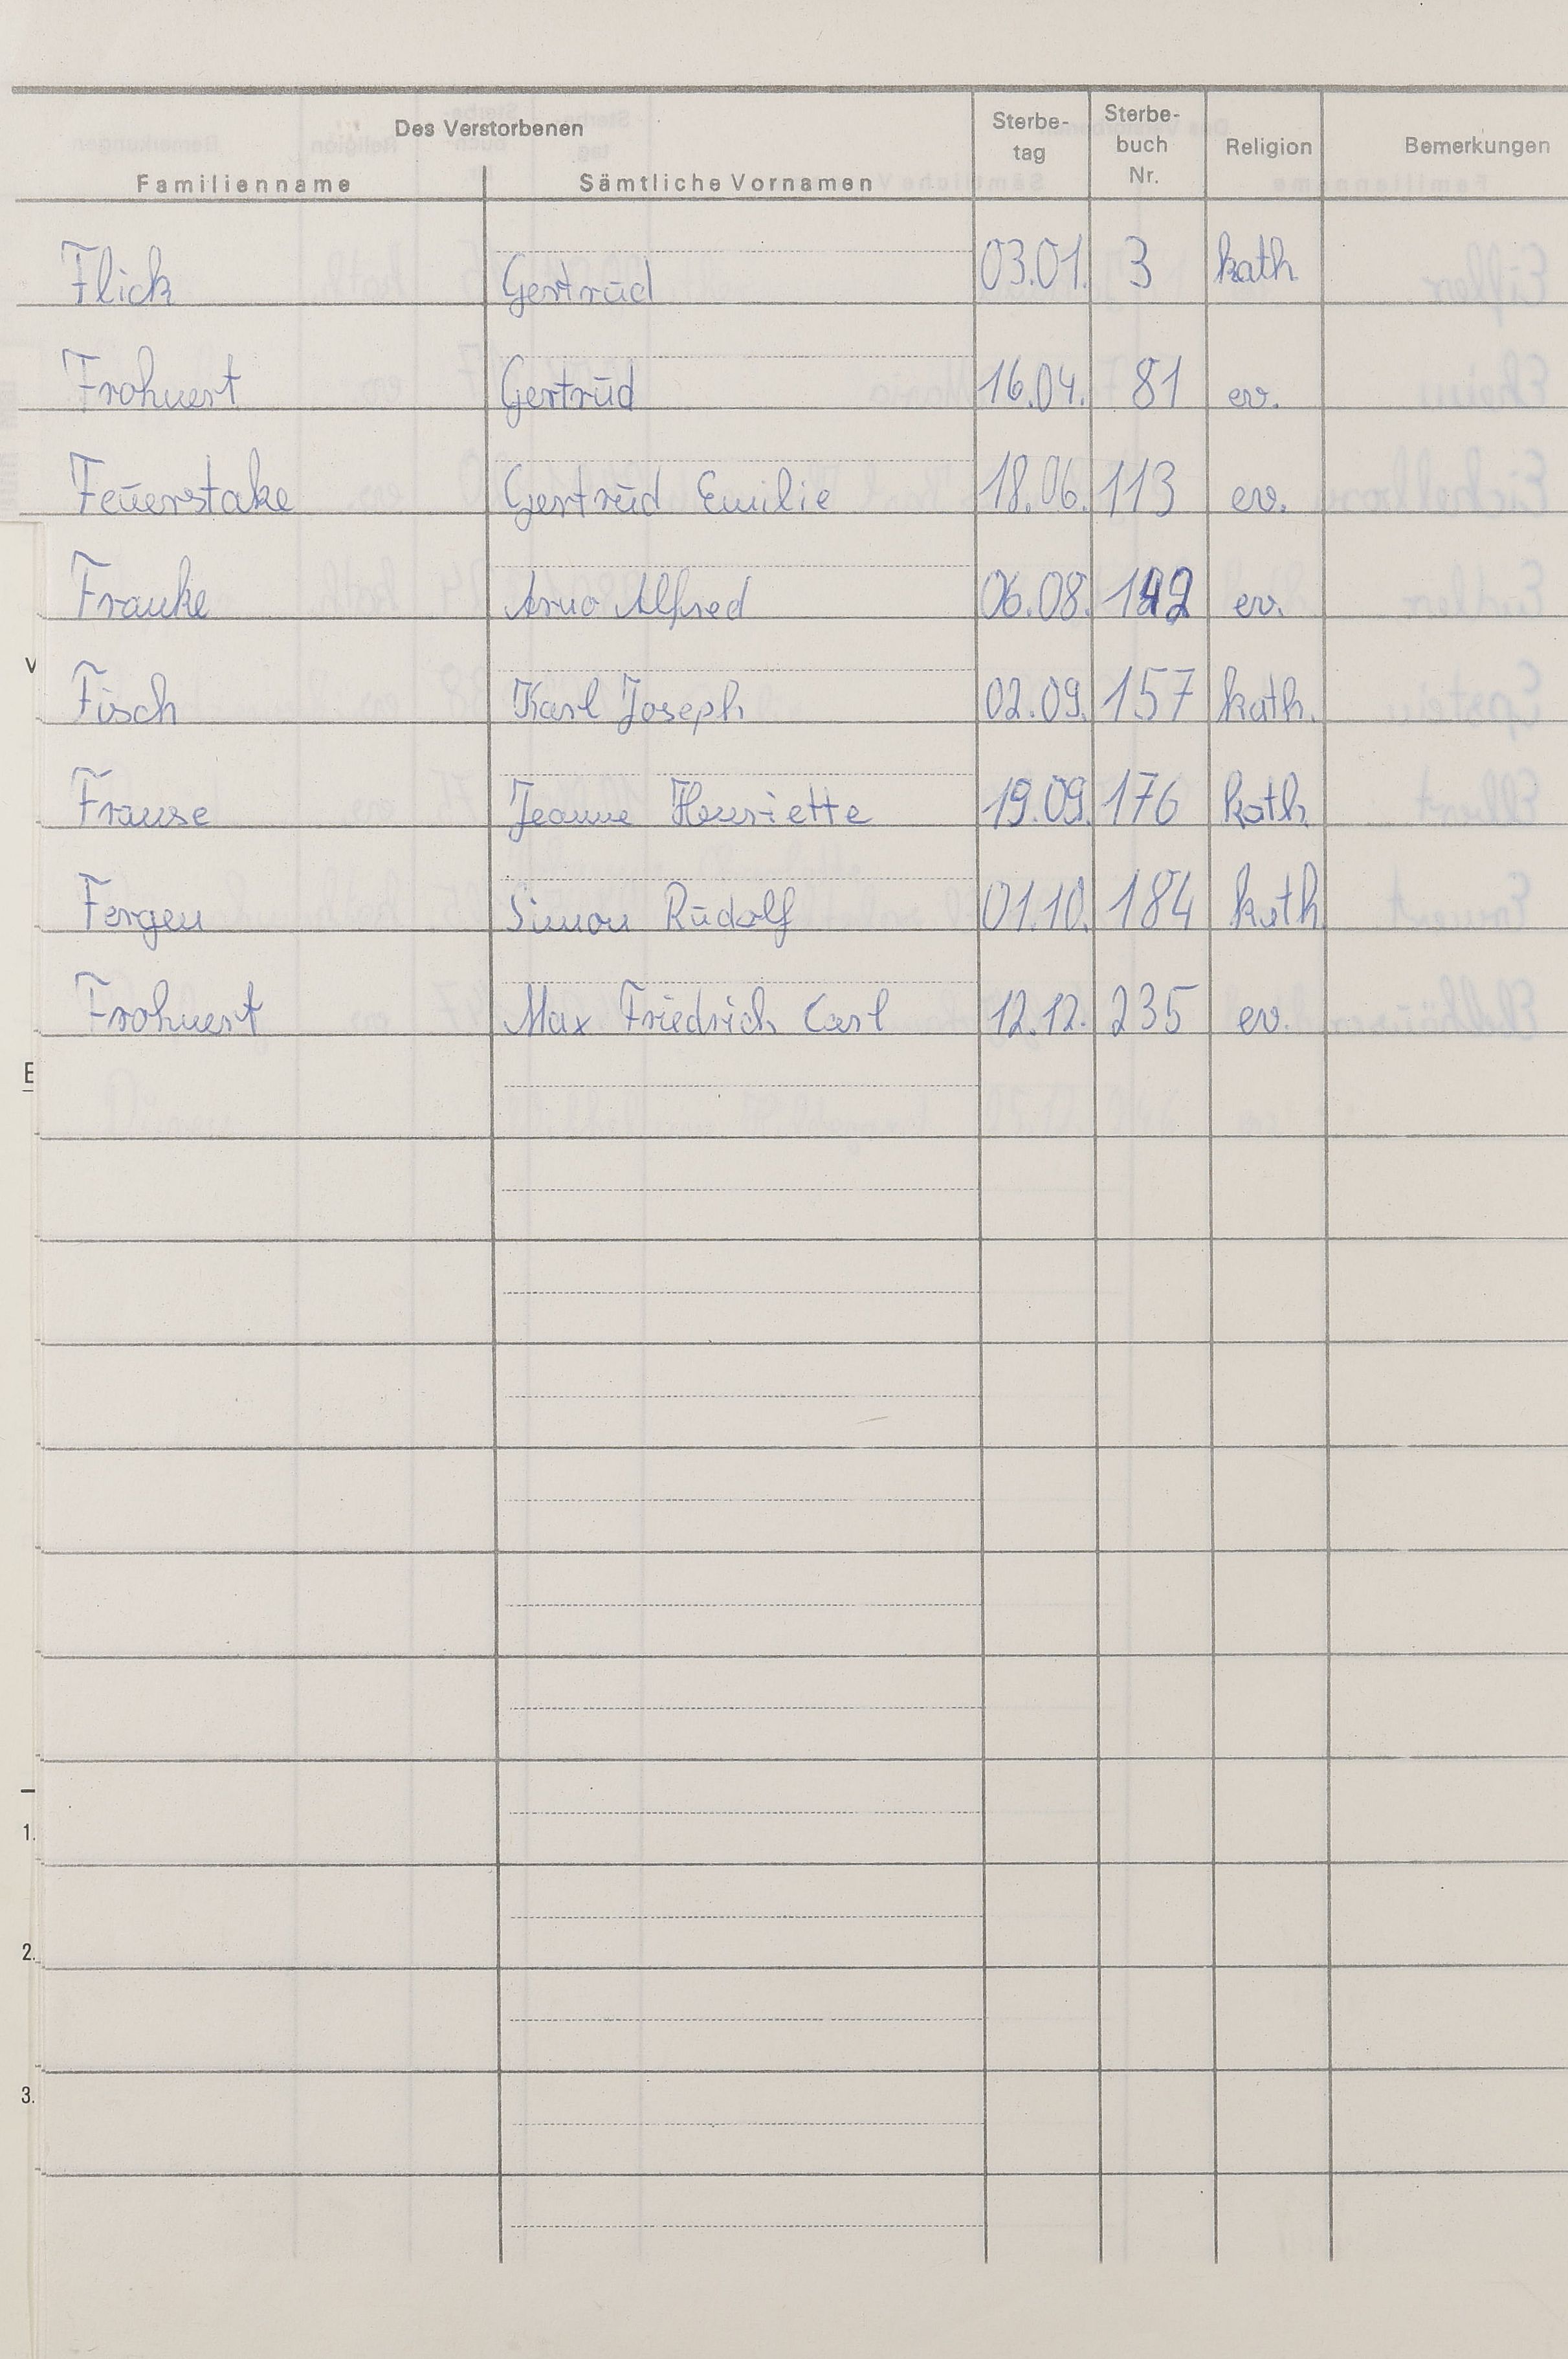 Des Verstorbenen
Familienname Sämtliche Vornamen Sterbe-tag Sterbe-buch Nr. Religion Bemerkungen
Flick Gertrud 03.01. 3 kath.
Frohnert Gertrud 16.04. 81 ev.
Feuerstake Gertrud Emilie 18.06. 113 ev.
Franke Arno Alfred 06.08. 142 ev.
Fisch Karl Joseph 02.09. 157 kath.
Franse Jeanne Henriette 19.09. 176 kath.
Fergen Simon Rudolf 01.10. 184 kath
Frohnert Max Friedrich Carl 12.12. 235 ev.
1.
2.
3.